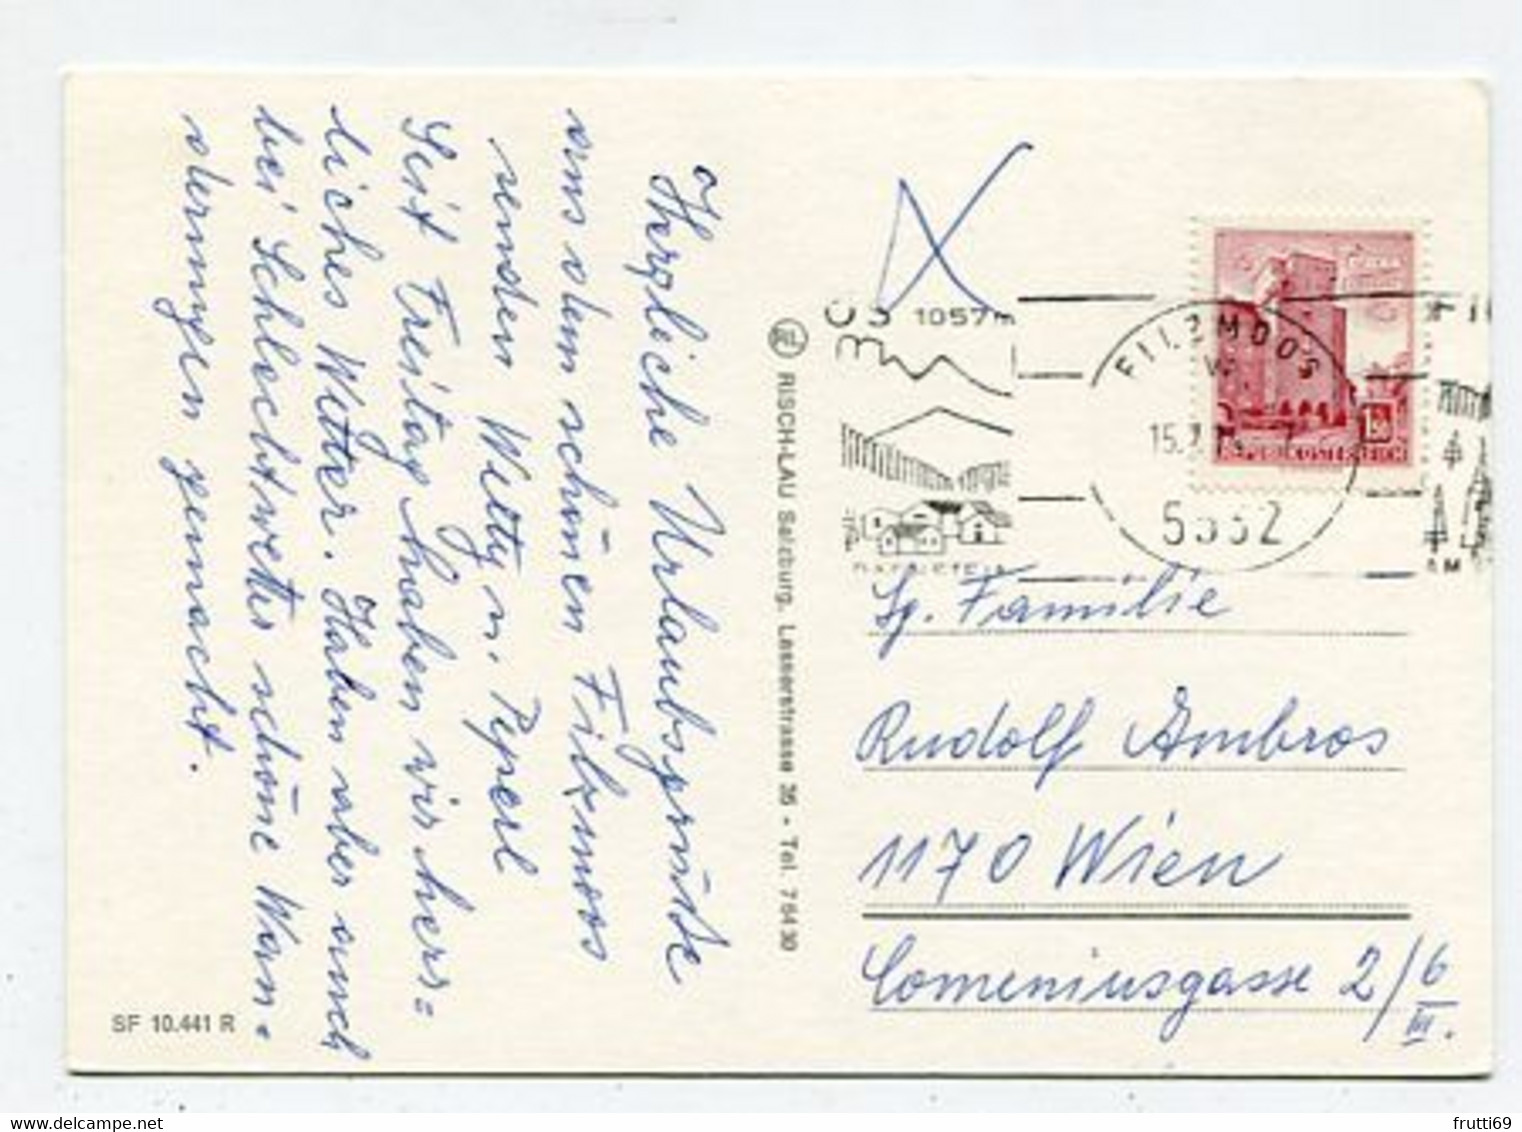 Herzliche Urlaubsgrüße
aus dem schönen Filzmoos
senden Wetty u. Peperl
Seit Freitag haben wir herr=
liches Wetter. Haben aber auch
bei Schlechtwetter schöne Wan-
derungen gemacht.
SF 10.441 R
RISCH-LAU Salzburg, Lasserstrasse 35 - Tel. 7 64 30
1057m
FILZMOOS
15.
5532
1.50
REPUBLIK ÖSTERREICH
DACHSTEIN
AM
Sg. Familie
Rudolf Ambros
1170 Wien
Comeniusgasse 2/6
III.
frutti69